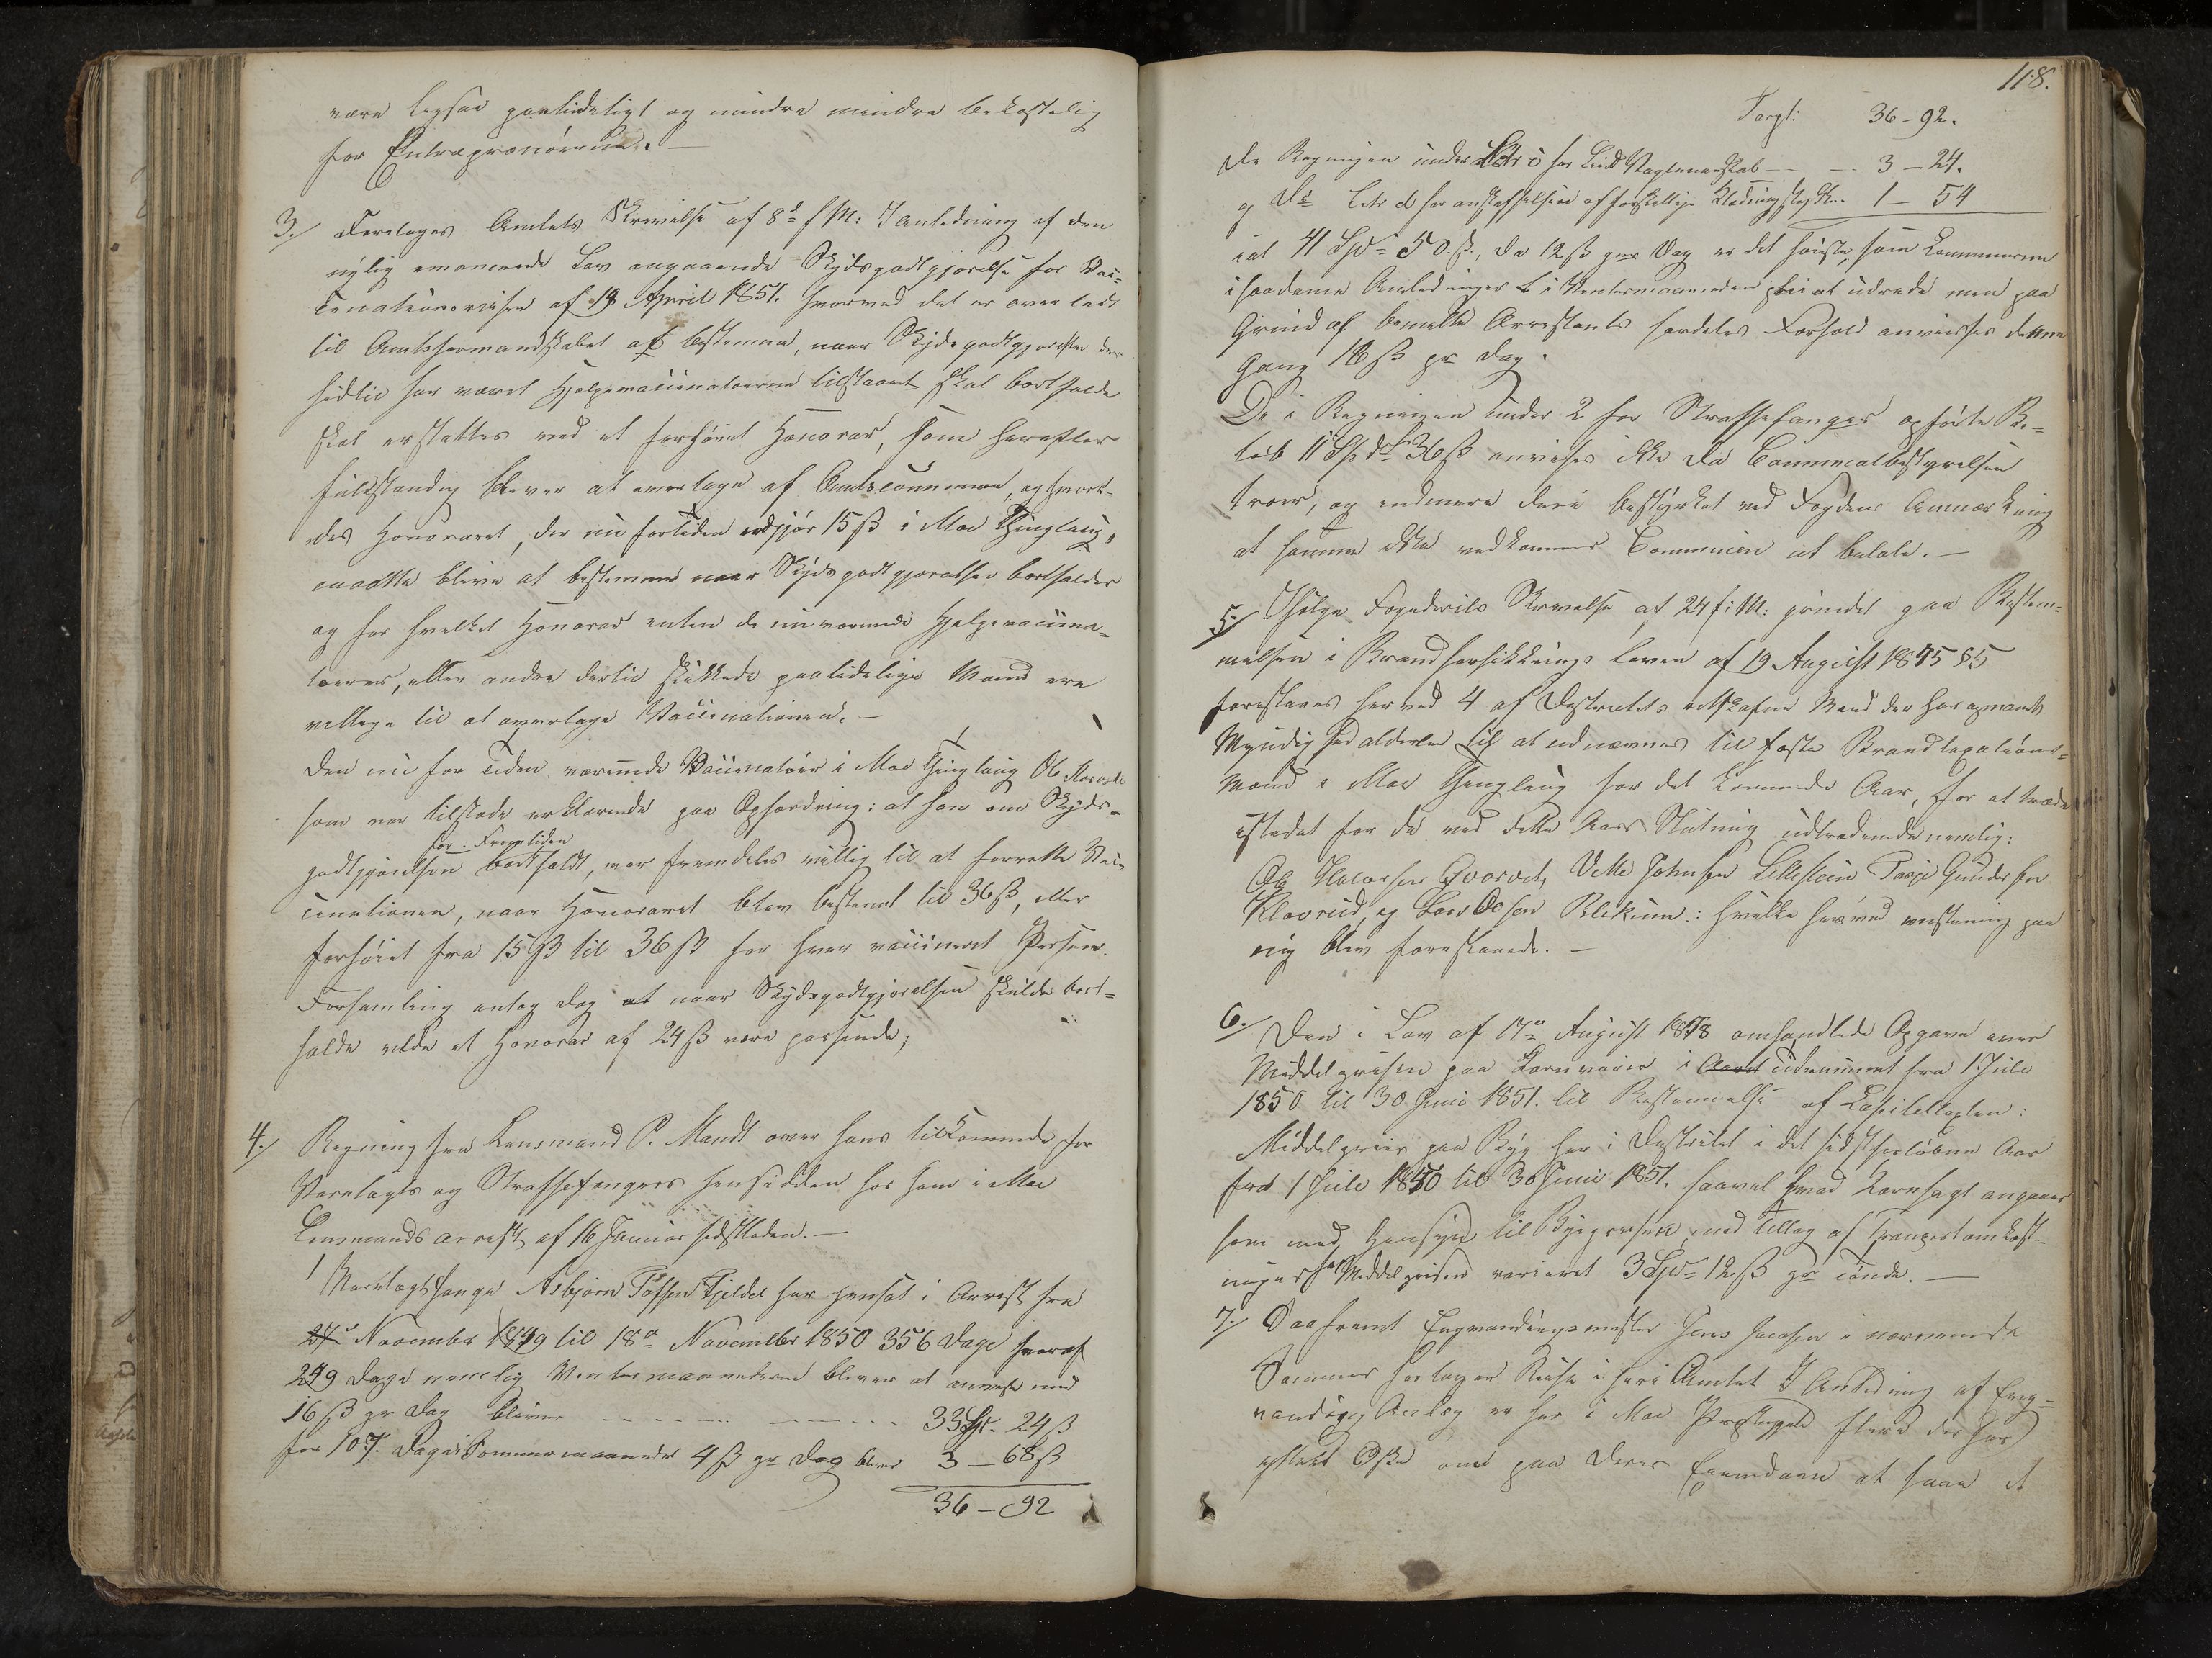 være ligesaa paalideligt og mindre mindre bekostelig
for Entreprenörerne. —
3./ Foretoges Amtets Skrivelse af 8de f. M. I Anledning af den
nylig emanerede Lov angaaende Skydsgodtgjørelse for Vac=
cinationsreiser af 18 April 1851. hvorved det er overladt
til Amtsformandskabet at bestemme, naar Skydsgodtgjørelsen der
hidtil har været Hjelpevaccinatørerne tilstaaet skal bortfalde
skal erstattes ved et forhöiet Honorar, som herefter
fuldstændig bliver at overtage af Amtscommunen, og hvor
des Honoraret, der nu fortiden udgjör 15 ß i Moe Thinglaug,
maatte blive at bestemme naar Skydsgodtgjørelsen bortfalder
og for hvilket Honorar enten de nuværende Hjelpevaccina-
törer, eller andre dertil skikkede paalidelige Mænd ere
villige til at overtage Vaccinationen. —
Den nu for Tiden værende Vaccinatör i Moe Thinglaug Ole
som var tilstede erklærede paa Opfordring: at han om Skyds-
for Fremtiden
godtgjørelsen bortfaldt, var fremdeles villig til at forrette Vac-
cinationen, naar Honoraret blev bestemt til 36 ß, eller
forhöiet fra 15 ß til 36 ß for hver vaccineret Person.
Forsamling antog dog at naar Skydsgodtgjørelsen skulde bort=
falde vilde et Honorar af 24 ß være passende;
4./ Regning fra Lensmand P. Mandt over hans tilkommende for
Varetægts og Straffefangers hensidden hos ham i Moe
Lensmands arrest af 16 Januar sidstleden. —
1 Varetægtsfange Asbjörn Fjeldal har hensat i Arrest fra
27de November 1849 til 18de November 1850 356 Dage hvoraf
249 Dage nemlig Vintermaanederne bliver at anvise med
16 ß pr Dag bliver — — — 33 Spd. 24 ß
for 107. Dage i Sommermaaneder 4 ß pr Dag bliver 3 — 68 ß
36 — 92
118.
Transpt: 36 — 92.
De Regningen under Litr c for Vagtmandskab — — 3 — 24.
og Do Litr d for anskaffelsen af forskjellige Klædningsstykker 1 — 54
ialt 41 Spd 50 ß., da 12 ß pr Dag er det höieste, som Communerne
i saadanne Anledninger i Vintermaaneden pleier at udrede men paa
Grund af bemeldte Arrestants særdeles Forhold anvises denne
Gang 16 ß pr Dag.
De i Regningen under 2 for Straffefanger opförte Be=
löb 11 Spd 36 ß anvises ikke da Communalbestyrelsen
troer, og endmere deri bestyrket ved Fogdens Anmærkning
at samme ikke vedkommer Communen at betale. —
5./ Ifölge Fogderiets Skrivelse af 24 f: M: grundet paa Bestem=
melsen i Brandforsikkrings Loven af 19 August 1845 § 5
foreslaaes herved 4 af Destrictets retskafne Mænd der har opnaaet
Myndighedsalderen til at udnævnes til faste Brandtaxations=
Mænd i Moe Thinglaug for det kommende Aar, for at træde
istedet for de ved dette Aars Slutning udtrædende nemlig:
Ole Halvorsen Qvorvet, Vetle Johnsen Lillestein Tarje Gunders
Klovrud, og Lars Olsen Blekum: hvilke herved enstemmig paa
nig blev foreslaaede. —
6./ Den i Lov af 17de August 1818 omhandlede Opgave over
Middelprisen paa Kornvarer i Aaret Tidsrummet fra 1 Juli
1850 til 30 Juni 1851. til Bestemmelse af Kapiteltaxten:
Middelpriis paa Byg her i Destriktet i det sidstforlöbne Aar
fra 1 Juli 1850 til 30 Juni 1851. saavel hvad Kornkjöbt angaaer
som med Hensyn til Byeprisen med Tillæg af Transportomkost-
ninger har Middelprisen varieret 3 Spd 12 ß pr Tönde. —
7./ Saafremt Engvandingsmester Jens Jacobsen i nærværende
Sommer foretager Reise i Amtet I Anledning af Eng=
vandings Anlæg er her i Moe Præstegjeld flere der har
yttret Önske om paa deres Eiendomme at faae et